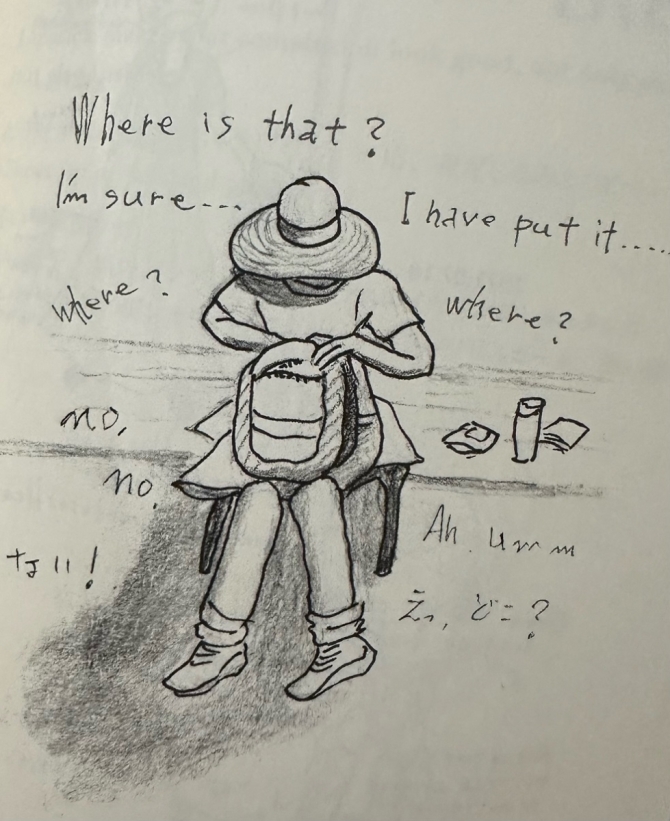 Where is that?
I'm sure...
I have put it.....
where?
where?
no,
no.
Ah. umm
ない!
えっ, どこ?